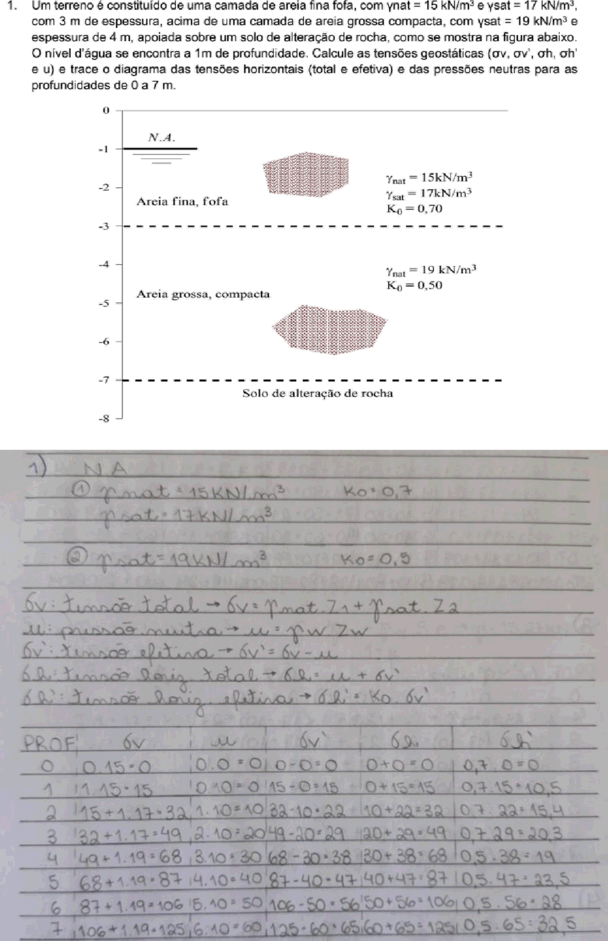 1. Um terreno é constituído de uma camada de areia fina fofa, com γnat = 15 kN/m³ e γsat = 17 kN/m³,
com 3 m de espessura, acima de uma camada de areia grossa compacta, com γsat = 19 kN/m³ e
espessura de 4 m, apoiada sobre um solo de alteração de rocha, como se mostra na figura abaixo.
O nível d'água se encontra a 1m de profundidade. Calcule as tensões geostáticas (σv, σv', σh, σh'
e u) e trace o diagrama das tensões horizontais (total e efetiva) e das pressões neutras para as
profundidades de 0 a 7 m.
0
N.A.
-1
γnat = 15kN/m³
-2
γsat = 17kN/m³
Areia fina, fofa
K₀ = 0,70
-3
-4
γnat = 19 kN/m³
K₀ = 0,50
Areia grossa, compacta
-5
-6
-7
Solo de alteração de rocha
-8
1) N.A
① γnat = 15KN/m³ K0 = 0,7
γsat = 17KN/m³
② γsat = 19KN/m³ K0 = 0,5
σv: tensão total → σv = γnat . Z1 + γsat . Z2
u: pressão neutra → u = γw Zw
σv': tensão efetiva → σv' = σv - u
σh: tensão horiz total → σh = u + σv'
σh': tensão horiz efetiva → σh' = K0 . σv'
PROF σv u σv' σh σh'
0 0.15=0 0.0=0 0-0=0 0+0=0 0,7.0=0
1 1.15=15 0.10=0 15-0=15 0+15=15 0,7.15=10,5
2 15+1.17=32 1.10=10 32-10=22 10+22=32 0,7.22=15,4
3 32+1.17=49 2.10=20 49-20=29 20+29=49 0,7.29=20,3
4 49+1.19=68 3.10=30 68-30=38 30+38=68 0,5.38=19
5 68+1.19=87 4.10=40 87-40=47 40+47=87 0,5.47=23,5
6 87+1.19=106 5.10=50 106-50=56 50+56=106 0,5.56=28
7 106+1.19=125 6.10=60 125-60=65 60+65=125 0,5.65=32,5